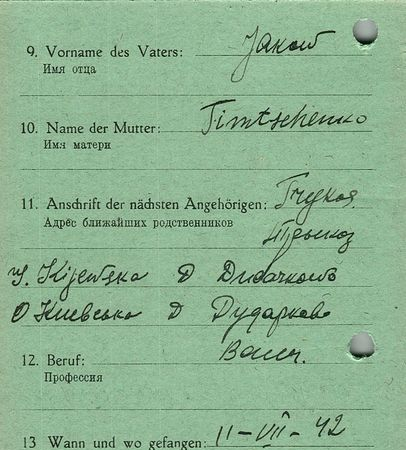 9. Vorname des Vaters: Jakow
Имя отца
10. Name der Mutter: Timtschenko
Имя матери
11. Anschrift der nächsten Angehörigen:
Адрес ближайших родственников
Kijewska D Dudarkowo
О Киевська Д Дударково
12. Beruf: Bauer.
Профессия
13 Wann und wo gefangen: 11-VII-42